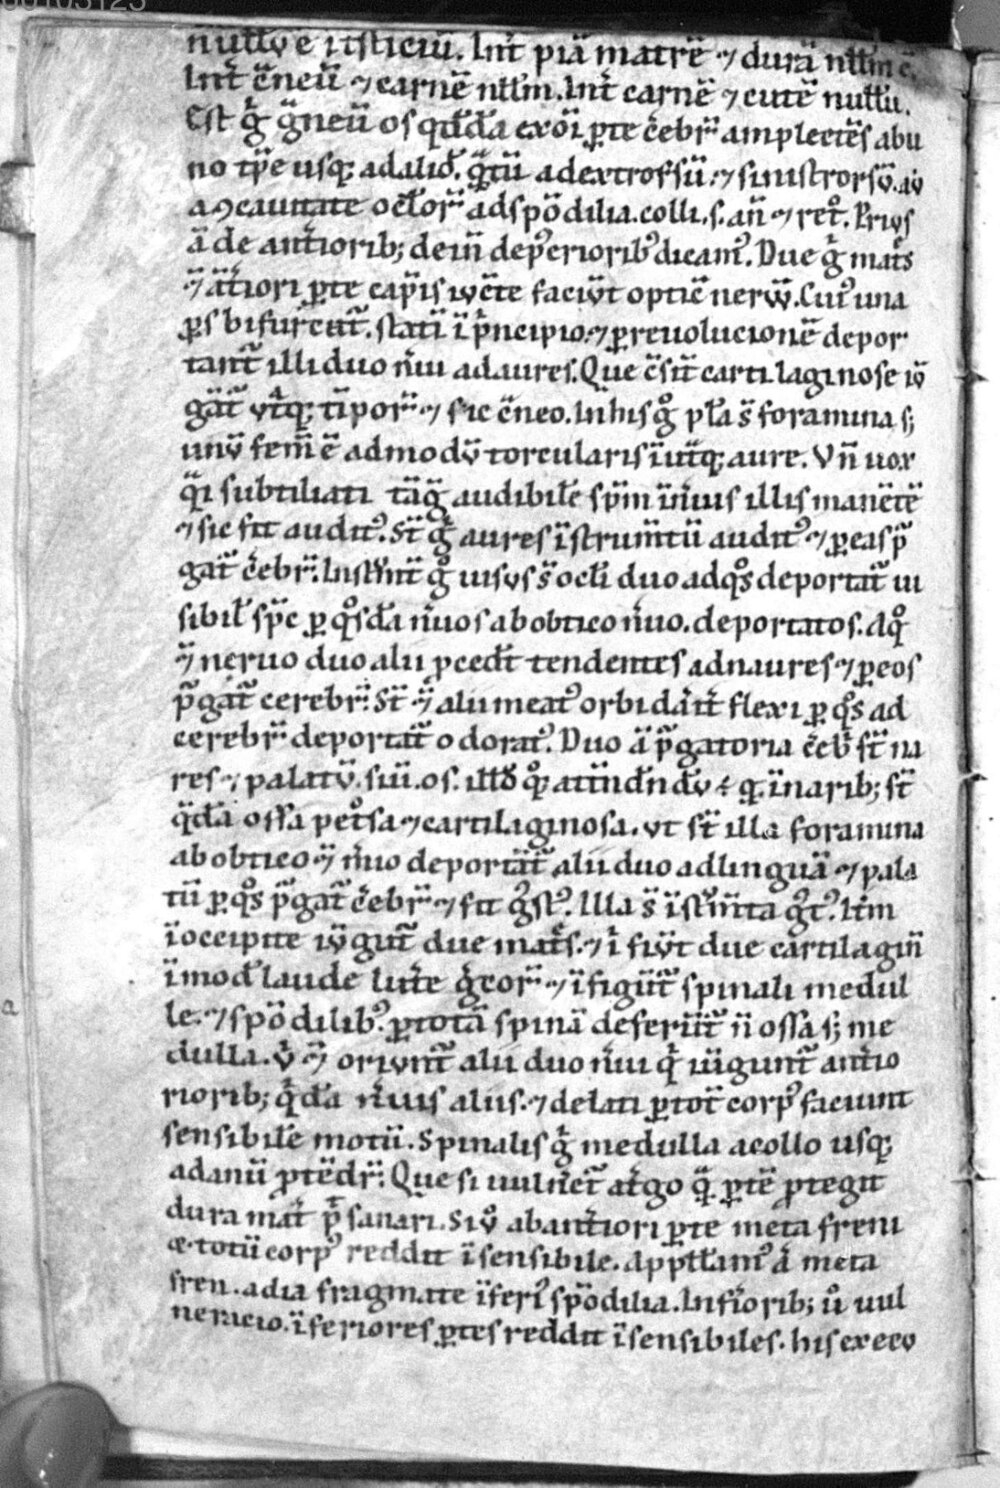 nullū e itsticiū. Int̄ piā matrē ⁊ durā nll'm ē.
Int̄ c̄neū ⁊ carnē nll'm. Int̄ carnē ⁊ cutē nullū.
Est g̊ g̃neū os qd'd'a exōi ꝑte c̄ebr̃ amplectēs abu
no tꝑe usq; ad aliđ. q̃tū adextrorsū ⁊ sinistrorsū.
a ꝯcauitate ocl'or̃ ad spōdilia. colli. s. an̄ ⁊ ret̊. Prius
ā de ant̄iorib; dein̄ dep̊erioribꝰ dicamꝰ. Due g̊ mat̄s
⁊̃ āt̄iori ꝑte cap̄is iūcte faciūt opticē nerūū. Cuiꝰ una
ꝑs bifurcat̃. statī ī p̄ncipio. ⁊ ꝑ reuolucionē depor
tant̃ illi duo n̄ui ad aures. Que c̄sit̄ cartilaginose iū
gūt̃ utiq; tīpor̃ ⁊ sic c̄neo. In his g̊ pl'a s̄ foramina s;
unū fem̄ ē ad modū torcularis ī utq; aure. Vn̄ uox
q̃i subtiliati tāq̃ audibile sp̄m īn̄uis illis manētē
⁊ sic fit auditꝰ. St̄ g̊ aures īstrum̄tū auditꝰ ⁊ ꝑ eas p̃
gat̃ c̄ebr̃. Instr̄m̄t g̊ uisus s̄ ocl'i duo ad q̊s deportat̃ ui
sibil' sp̄c ꝑ q̊sd'a n̄uos ab obtico n̄uo. deportatos. Aq̊
⁊̃ neruo duo alii ꝓcedt̄ tendentes ad naures ⁊ ꝑ eos
p̃gat̃ cerebr̃. St̄ ⁊̃ alii meatꝰ orbidārt̄ flexi ꝑ q̊s ad
cerebr̃ deportat̃ odoratꝰ. Duo ā p̃gatoria c̄eb̃ st̄ na
res ⁊ palatū. siū. os. illđ q̊ꝫ attn̄dn̄dū ē q. ī narib; st̄
q̃d'a ossa pet̊sa ⁊ cartilaginosa. ut st̄ illa foramina
ab obtico ⁊̃ n̄uo deportāt̃ alii duo ad linguā ⁊ pala
tū ꝑ q̊s p̃gat̃ c̄ebr̃ ⁊ fit g̊stꝰ. Illa s̄ īstr̄m̄ta g̊tꝰ. It̄m
ī occipite iūgūt̃ due mat̄s. ⁊ ī fiūt due cartilagin̄
ī mod' laude lit̄e g̊cor̃ ⁊ īfigūt̃ spinali medul
le. ⁊ spōdilibꝰ. ꝑ totā spinā deferūt̃ n̄ ossa s; me
dulla. V̊ ⁊̃ oriunt̃ alii duo n̄ui q̊ iūgunt̃ ant̄io
riorib; q̊d'a n̄uis aliis. ⁊ delati ꝑ tot̄ corpꝰ faciunt
sensibile motū. Spinalis g̊ medulla a collo usq;
ad anū ꝓtēdr̃. Que si uuln̄et̃ at̄go q̃ ꝑtē ꝓtegit
dura mat̄ p̊t sanari. Si ů ab ant̄iori ꝑte meta freni
ce totū corpꝰ reddit īsensibile. Appll'amꝰ ā meta
fren. a diafragmate īferiꝰ spōdilia. Inf̄iorib; ů uul
neracio. īferiores ꝑtes reddit īsensibiles. his exeeo